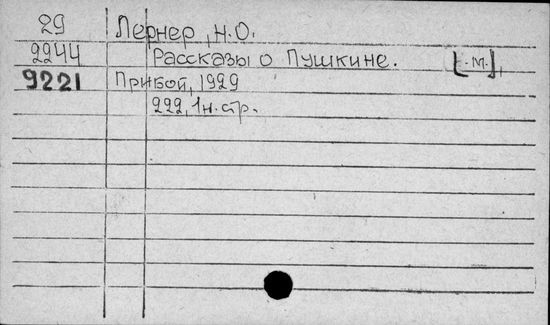 29 Лернер, Н.О.
2244 Рассказы о Пушкине. [.М.],
9221 Прибой, 1929
222, 1н.стр.